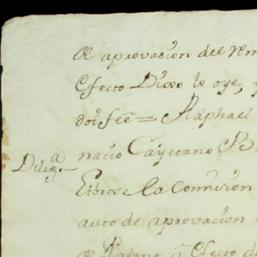 de aprovasion del rem
efecto Dixo lo oye, y
doi feê = Raphael
Dilig.a nacio Cayetano B
Libros la Comision
auto de aprovacion
efecto d